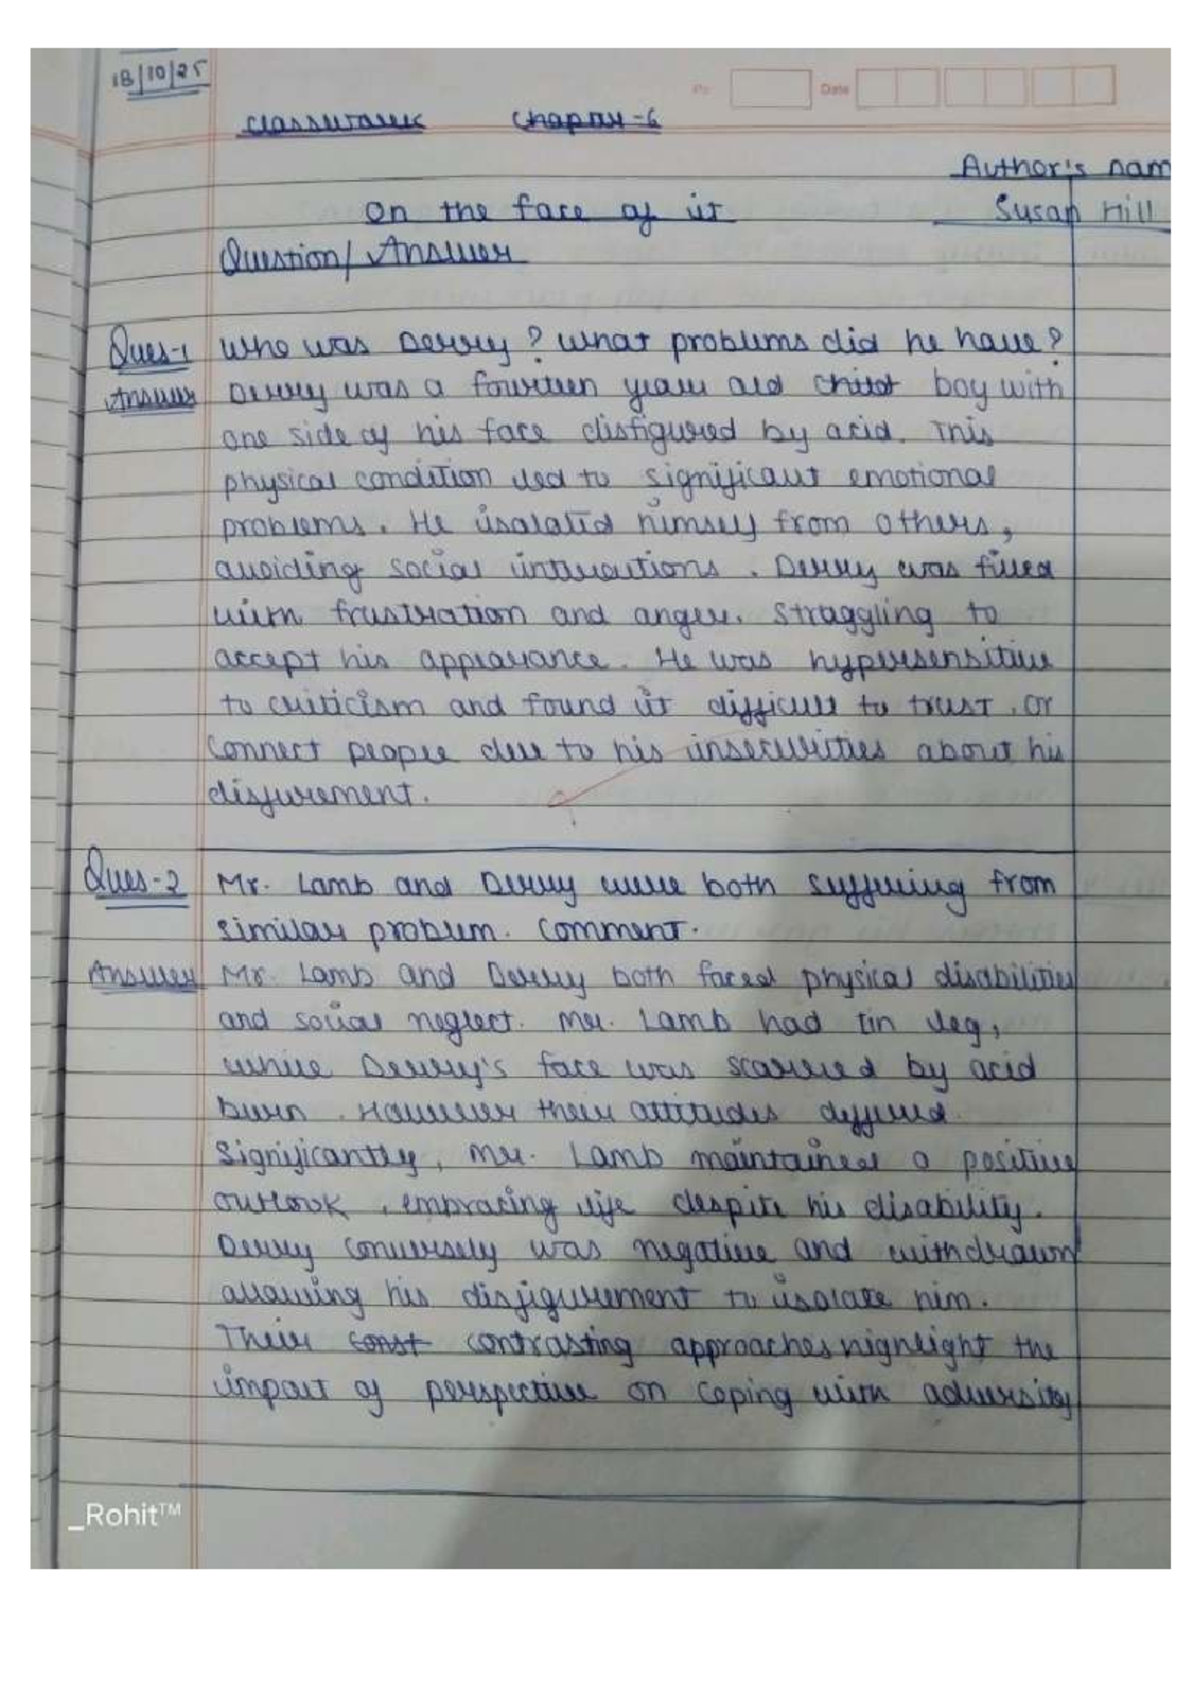 18/10/25
Pg:
Date
Classwork Chapter-6
Author's nam
On the face of it
Susan Hill
Question/Answer
Ques-1 Who was Derry? What problems did he have?
Answer Derry was a fourteen year old child boy with
one side of his face disfigured by acid. This
physical condition led to significant emotional
problems. He isolated himself from others,
avoiding social interactions. Derry was filled
with frustration and anger. Straggling to
accept his appearance. He was hypersensitive
to criticism and found it difficult to trust. or
connect people due to his insecurities about his
disfurement.
Ques-2 Mr. Lamb and Derry were both suffering from
similar problem. Comment.
Answer Mr. Lamb and Derry both faced physical disabilities
and social neglect. Mr. Lamb had tin leg,
while Derry's face was scarred by acid
burn. However their attitudes differed.
Significantly, Mr. Lamb maintained a positive
outlook, embracing life despite his disability.
Derry conversely was negative and withdrawn
allowing his disfigurement to isolate him.
Their const contrasting approaches highlight the
impact of perspective on coping with adversity
_Rohit™